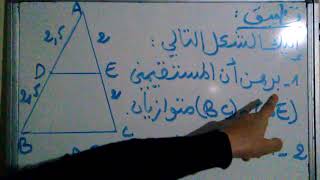 تطبيق :
الشكل التالي :
1 - برهن أن المستقيمين
(BC) E)
متوازيان
2 -
A
2,5
2
D
E
2,5
2
B
C